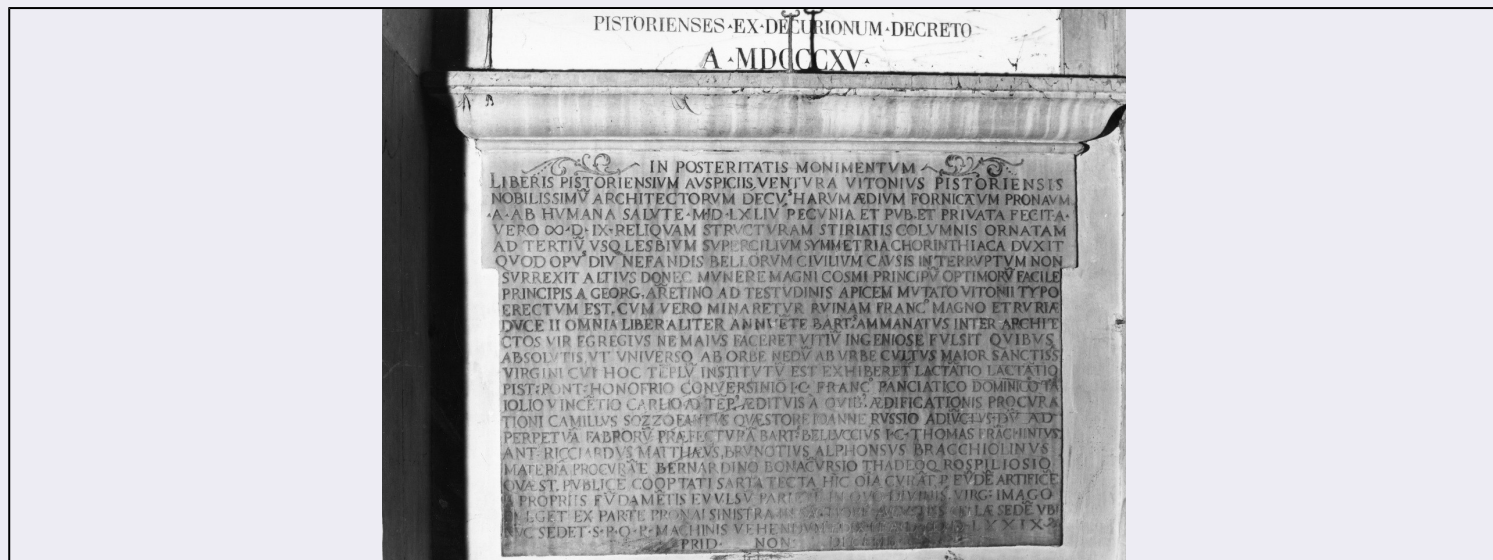 PISTORIENSES · EX · DECURIONUM · DECRETO
A · MDCCCXV ·
IN POSTERITATIS MONIMENTVM
LIBERIS PISTORIENSIVM AVSPICIIS VENTVRA VITONIVS PISTORIENSIS
NOBILISSIMV̄ ARCHITECTORVM DECVˢ HARVM ÆDIVM FORNICATVM PRONAVM
· A · AB HVMANA SALVTE · M · D · LXLIV PECVNIA ET PVB · ET PRIVATA FECIT A ·
VERO ∞ · D · IX · RELIQVAM STRVCTVRAM STIRIATIS COLVMNIS ORNATAM
AD TERTIV̄ VSQ LESBIVM SVPERCILIVM SYMMETRIA CHORINTHIACA DVXIT
QVOD OPVˢ DIV NEFANDIS BELLORVM CIVILIVM CAVSIS INTERRVPTVM NON
SVRREXIT ALTIVS DONEC MVNERE MAGNI COSMI PRINCIPV̄ OPTIMORV̄ FACILE
PRINCIPIS A GEORG · ARETINO AD TESTVDINIS APICEM MVTATO VITONII TYPO
ERECTVM EST · CVM VERO MINARETVR RVINAM FRANCº MAGNO ETRVRIÆ
DVCE II OMNIA LIBERALITER ANNVĒTE BARTˢ AMMANATVS INTER ARCHITE
CTOS VIR EGREGIVS NE MAIVS FACERET VITIV̄ INGENIOSE FVLSIT QVIBVS
ABSOLVTIS VT VNIVERSO AB ORBE NEDV̄ AB VRBE CVLTVS MAIOR SANCTISS
VIRGINI CVI HOC TĒPLV̄ INSTITVTV̄ EST EXHIBERET LACTATIO LACTATIQ
PIST : PONT : HONOFRIO CONVERSINIO I · C · FRANCº PANCIATICO DOMINICO TA
IOLIO VINCĒTIO CARLIO TĒP · ÆDITVIS A QVIB · ÆDIFICATIONIS PROCVRA
TIONI CAMILLVS SOZZOFANTVS QVÆSTORE IOANNE RVSSIO ADIV̄CTVS · DV̄ AD
PERPETVĀ FABRORV̄ PRÆFECTVRĀ BARTˢ BELLVCCIVS I · C · THOMAS FRACHINTVS
ANT · RICCIARDVS MATTHÆVS BRVNOTIVS ALPHONSVS BRACCHIOLINVS
MATERIĀ PROCVRĀTE BERNARDINO BONACVRSIO THADEOQ ROSPILIOSIO
QVÆST · PVBLICE COOPTATI SARTA TECTA HIC OĪA CVRĀT EVDĒ ARTIFICE
PROPRIIS FV̄DAMĒTIS EVVLSV PARIETE VIRG : IMAGO
EX PARTE PRONAI SINISTRA SEDĒ VBI
SEDET · S · P · Q · P · MACHINIS LXXIX
PRID · NON